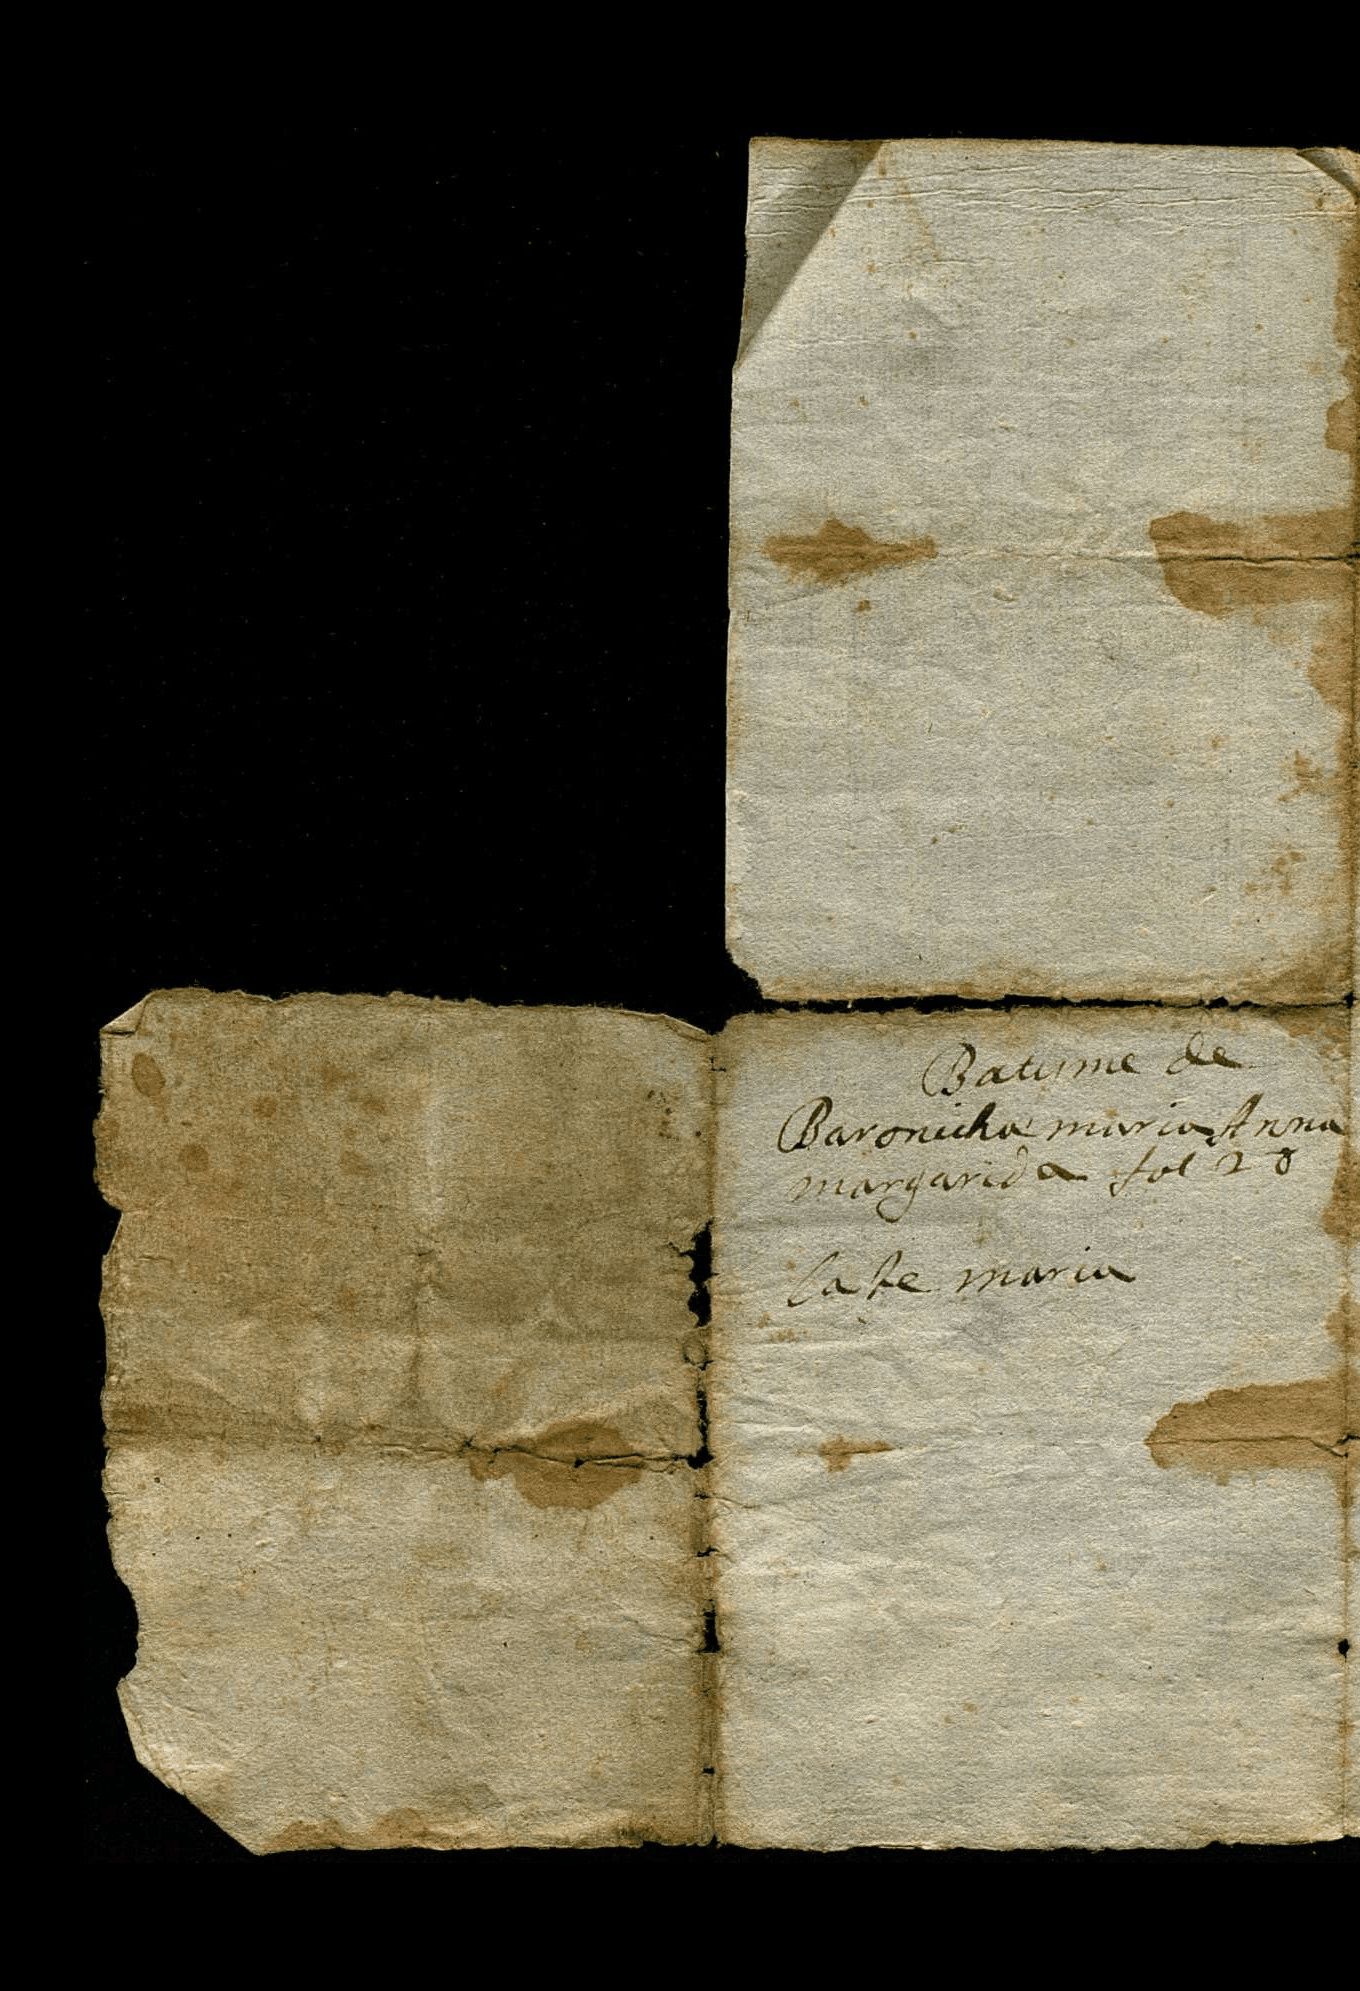 Batisme de
Baronicha maria Anna
margarida fol 28
Cate maria